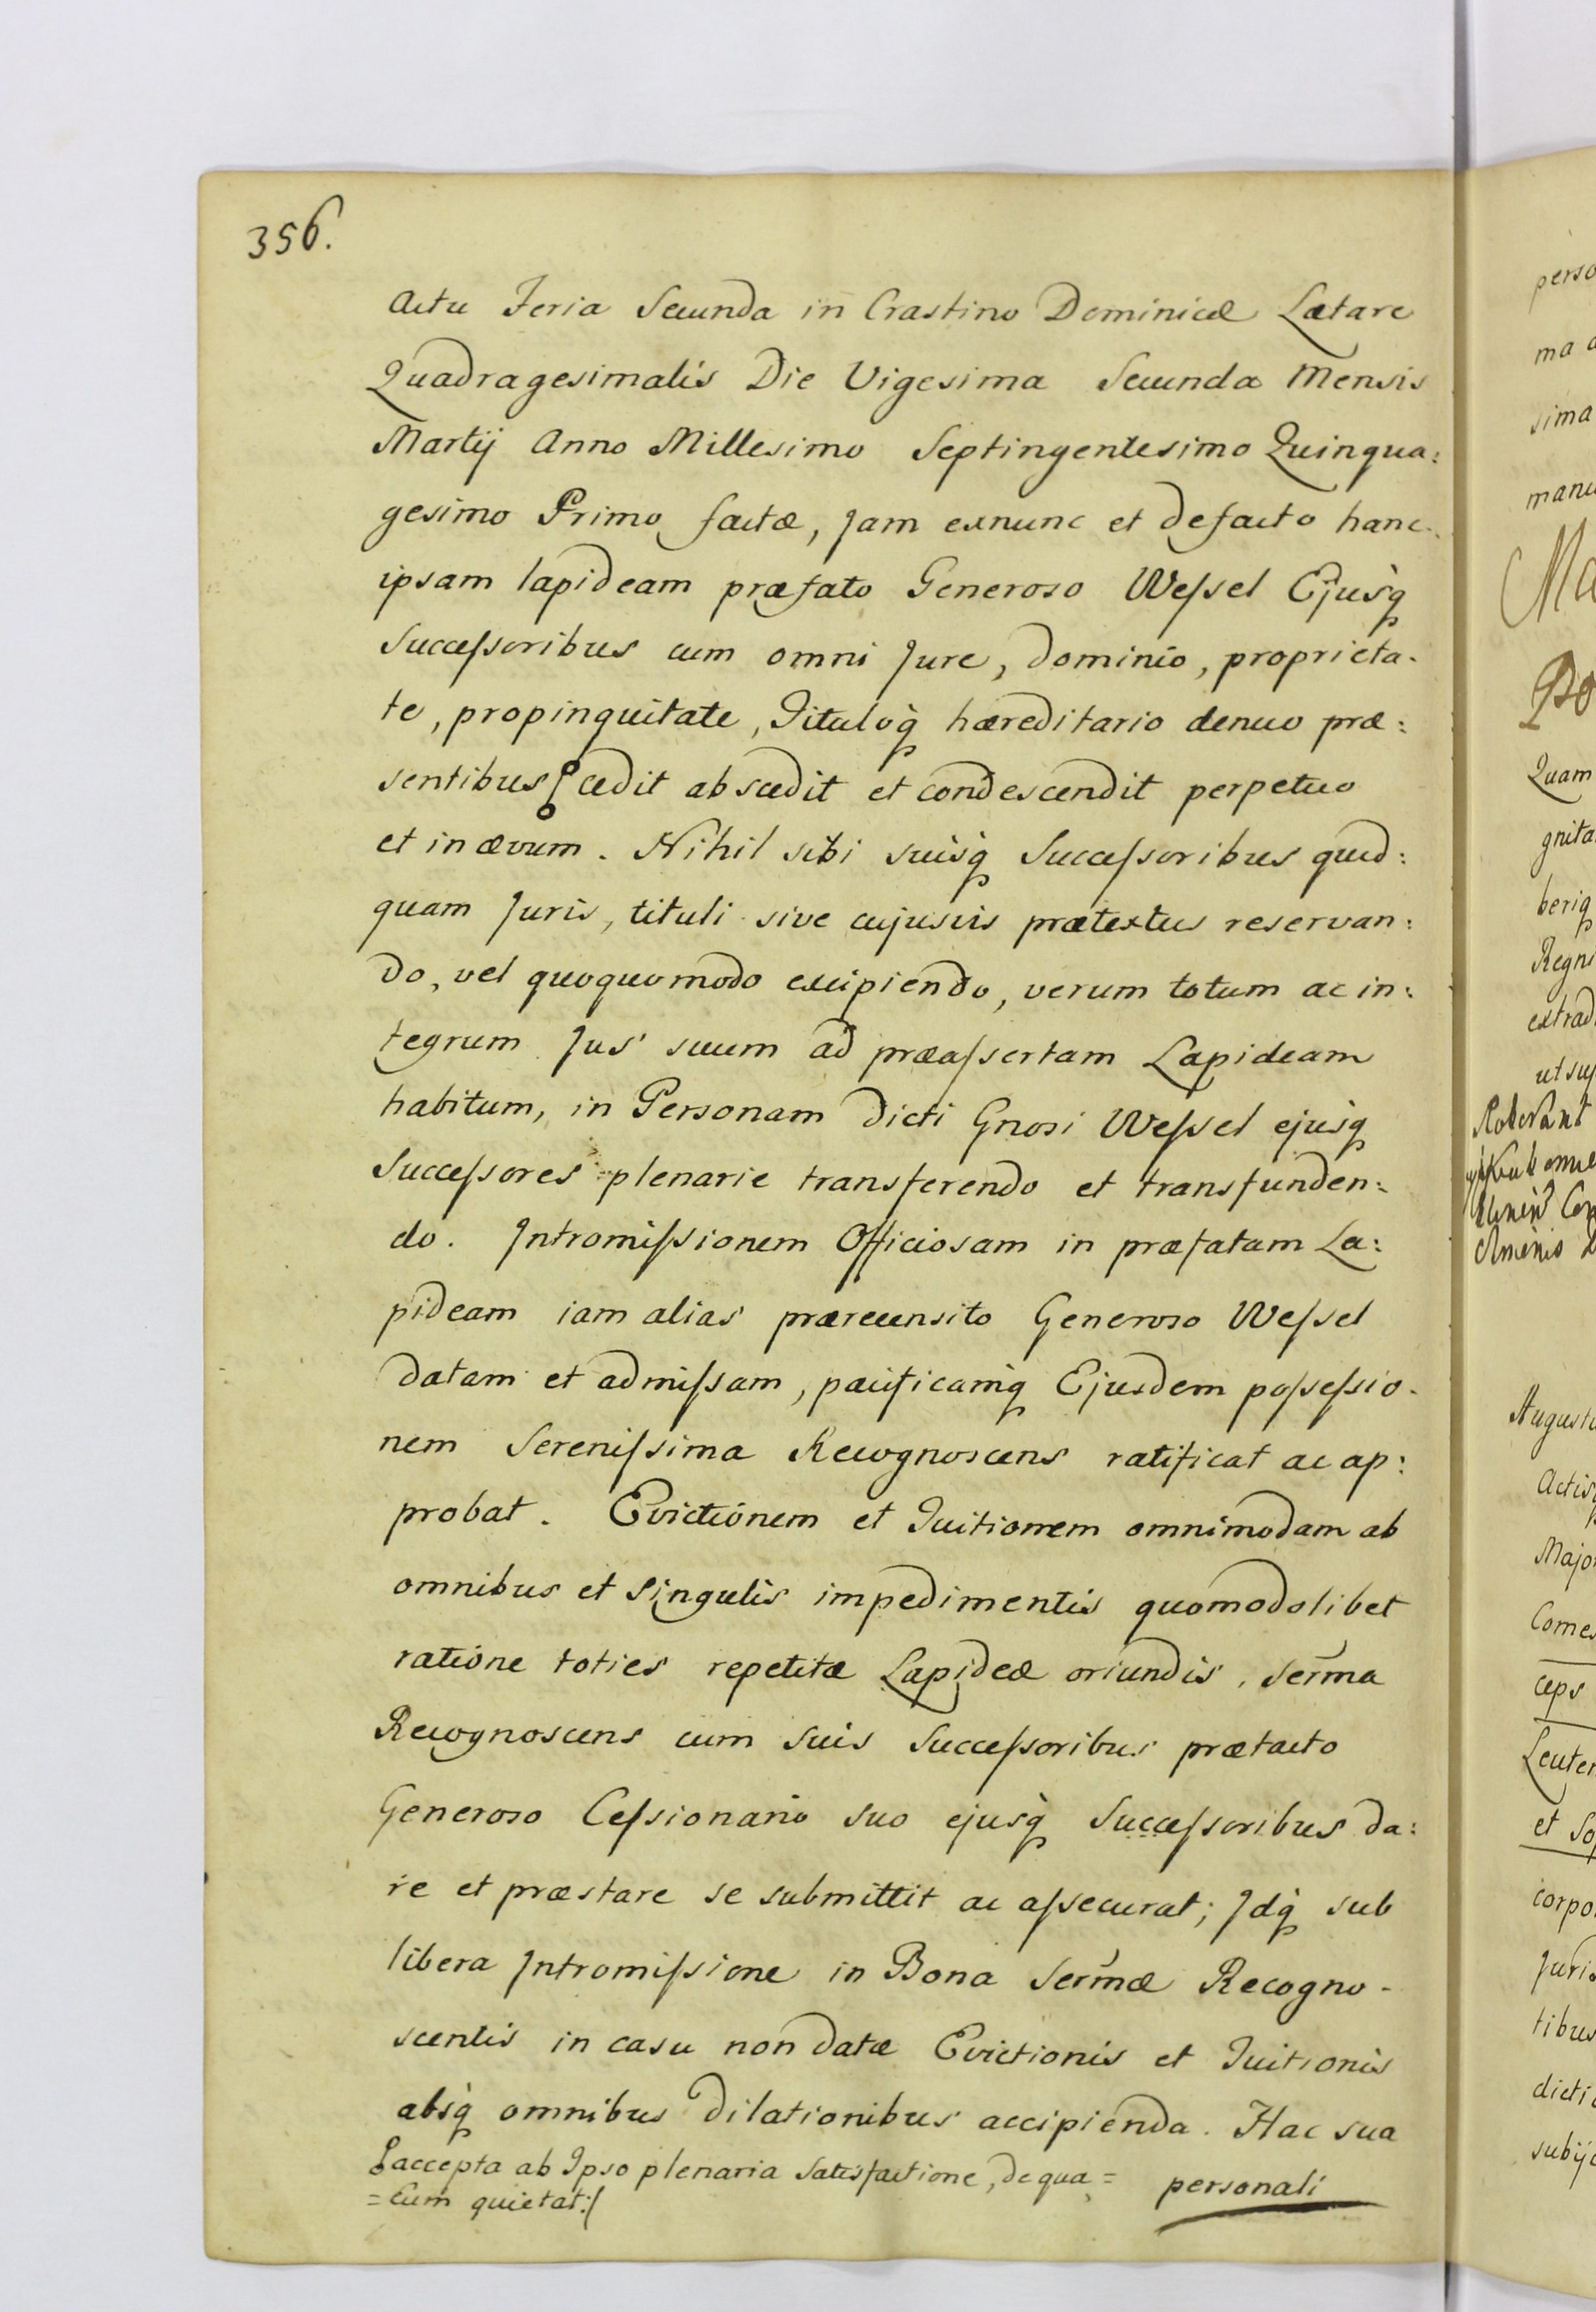 356.
Actu Feria Secunda in Crastino Dominicæ Lætare
Quadragesimalis Die Vigesima Secunda Mensis
Martij Anno Millesimo Septingentesimo Quinqua:
gesimo Primo factæ, Jam exnunc et defacto hanc
ipsam lapideam præfato Generoso Weſsel Ejusq̀
Succeſsoribus cum omni Jure, dominio, proprieta-
te, propinquitate, Tituloq̀ hæreditario denuo præ:
sentibus cedit abscedit et condescendit perpetuo
et in ævum. Nihil sibi suisq̀ Succeſsoribus quid:
quam Juris, tituli sive cujusvis prætextus reservan:
do, vel quoquomodo excipiendo, verum totum ac in:
tegrum Jus suum ad præaſsertam Lapideam
habitum, in Personam dicti Gnosi Weſsel ejusq̀
Succeſsores plenarie transferendo et transfunden:
do. Intromiſsionem Officiosam in præfatam La:
pideam iam alias prærecensito Generoso Weſsel
datam et admiſsam, pacificamq̀ Ejusdem poſseſsio-
nem Sereniſsima Recognoscens ratificat ac ap:
probat. Evictionem et Tuitionem omnimodam ab
omnibus et singulis impedimentis quomodolibet
ratione toties repetitæ Lapideæ oriundis, Serm̃a
Recognoscens cum suis Succeſsoribus prætacto
Generoso Ceſsionario suo ejusq̀ Succeſsoribus da:
re et præstare se submittit ac aſsecurat; Idq̀ sub
libera Intromiſsione in Bona Serm̃æ Recogno-
scentis in casu non datæ Evictionis et Tuitionis
absq̀ omnibus dilationibus accipienda. Hac sua
accepta ab Ipso plenaria Satisfactione, de qua =
= Eum quietat:/
personali
ma
sima
Quam
Regni
ut
Augusti
ceps
et
tibus